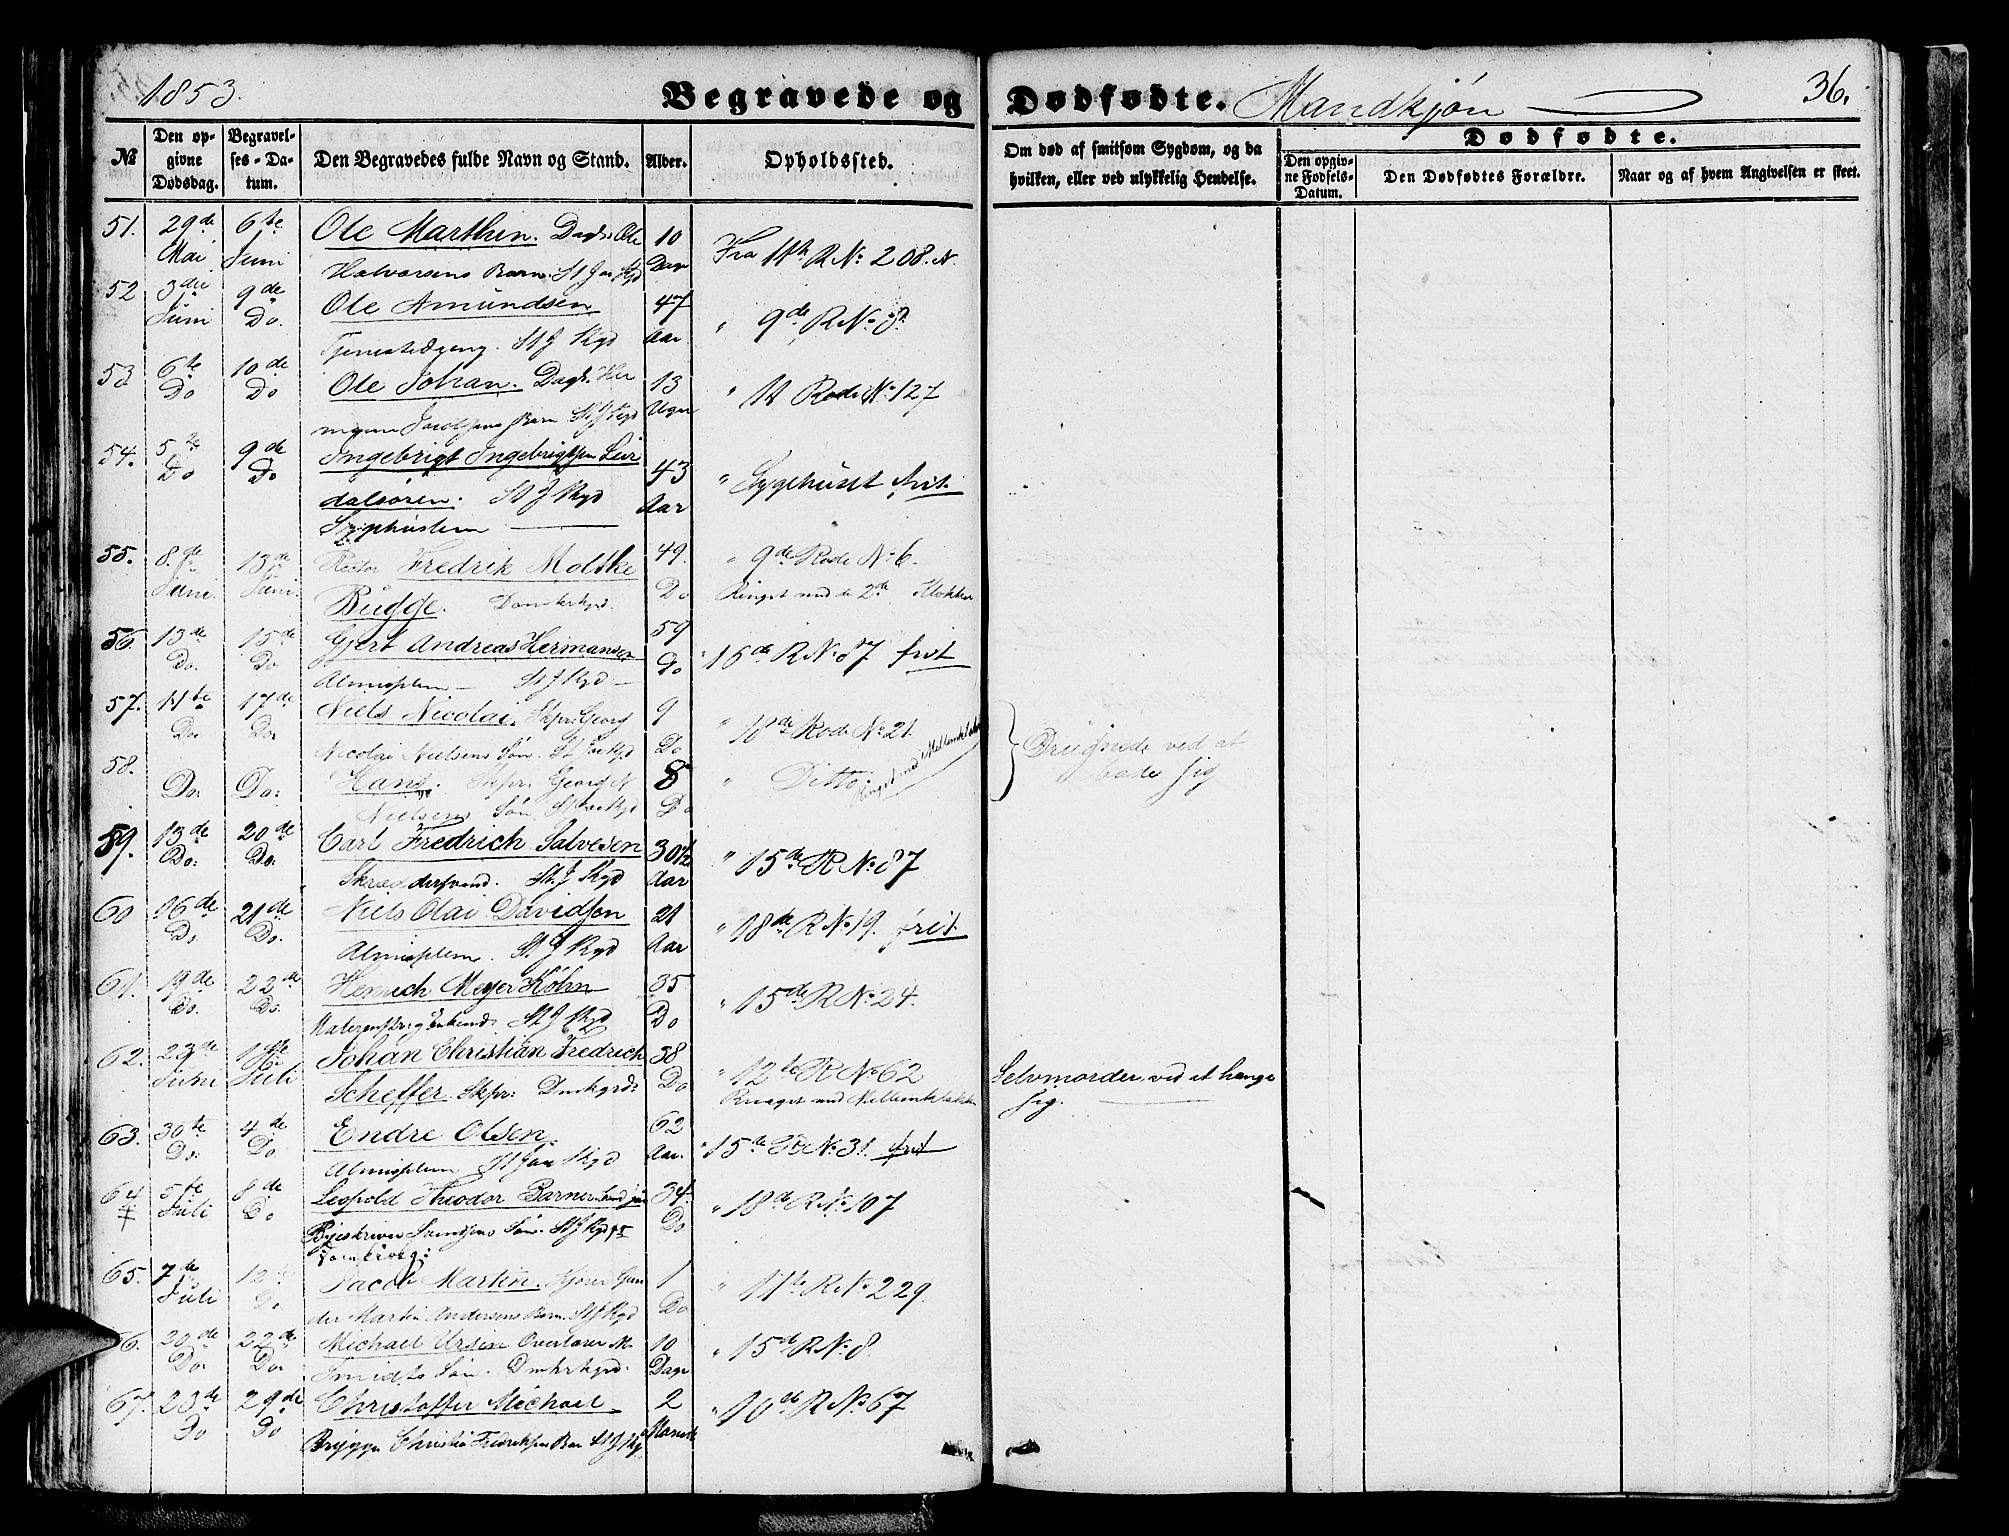 1853.
Begravede og Dødfødte. Mandkjøn
36.
№
Den opgivne Dødsdag.
Begravelses-Datum.
Den Begravedes fulde Navn og Stand.
Alder.
Opholdssted.
Om død af smitsom Sygdom, og da hvilken, eller ved ulykkelig Hendelse.
Dødfødte.
Den opgivne Fødsels-Datum.
Den Dødfødtes Forældre.
Naar og af hvem Angivelsen er skeet.
51. 29de 6te Ole Marthin. Dagk. Ole 10 Fra 11te R No 208. N.
Mai Juni Halvorsens Barn. St Jac Kgd Dage
52 3die 9de Ole Amundsen 47 " 9de R No 8.
Juni Do. St J Kgd Aar.
53 6te 10de Ole Johan. Dagk. Her 13 " 11 Rode No 127
Do Do mann Jacobsens Barn St J Kgd Uger
54. 5te 9de Ingebrigt Ingebrigtsen Leir 43 " Sygehuset frit.
Do Do dalsören. St J Kgd Aar
55. 8de 13de Rector Fredrik Moltke 49. " 9de Rode No 6.
Juni Juni. Bugge. Domkirkgrd. Do Ringet med de 2de Klokker
56. 13de 15de Gjert Andreas Hermansen 59 " 16de R No 87 frit
Do. Do Almisslem — St J Kgd — Do
57. 11te 17de Niels Nicolai. Skpr: Georg 9 " 18de Rode No 21.
Do. Do. Nicolai Nielsens Søn. St Jac Kgd Do
Druknede ved at bade sig
58. Do: Do: Hans. Skpr: Georg N 8 " Ditto. Ringet med Mellemklokken
Nielsens Søn. St Jac Kgd Do
59. 13de 20de Carl Fredrich Salvesen 30½ " 15de R No 87
Do: Do: Skræddersvend. St. J Kgd Aar
60 16de 21de Niels Olai Davidsen 21 " 18de R No 19. frit.
Do. Do. Almisslem. St J Kgd Aar
61. 19de 22de Henrich Meyer Köhn 35 " 15de R No 24.
Do. Do. St J Kgd Do
62. 23de 1ste Johan Christian Fredrich 38 " 12te R No 62 Selvmorder, ved at hænge
Juni Juli Scheffer. Skpr: Dmkgrd: Do Ringet med Mellemklokken sig.
63. 30te 4de Endre Olsen. 62 " 15de R No 31. frit
Do. Do. Almisslem St Jac Kgd Aar.
64 5te 8de Leopold Theodor Barner 34. " 18de R No 107
Juli Do Byeskriver Søn. St J Kgd Do
65. 7de 12te Jacob Martin. 1 " 11te R No 229.
Juli Do der Martin Andersens Barn. St J Kgd Do
66. 20de 22de Michael Ursin Overlærer M. 10 " 15de R No 8.
Do. Do. Smidts Søn. Dmkrkgrd. Dage
67. 23de 29de Christoffer Michael 2 " 10de R No 67
Do Do Brygge Christia Fredriksens Barn St J Kg. Maaned